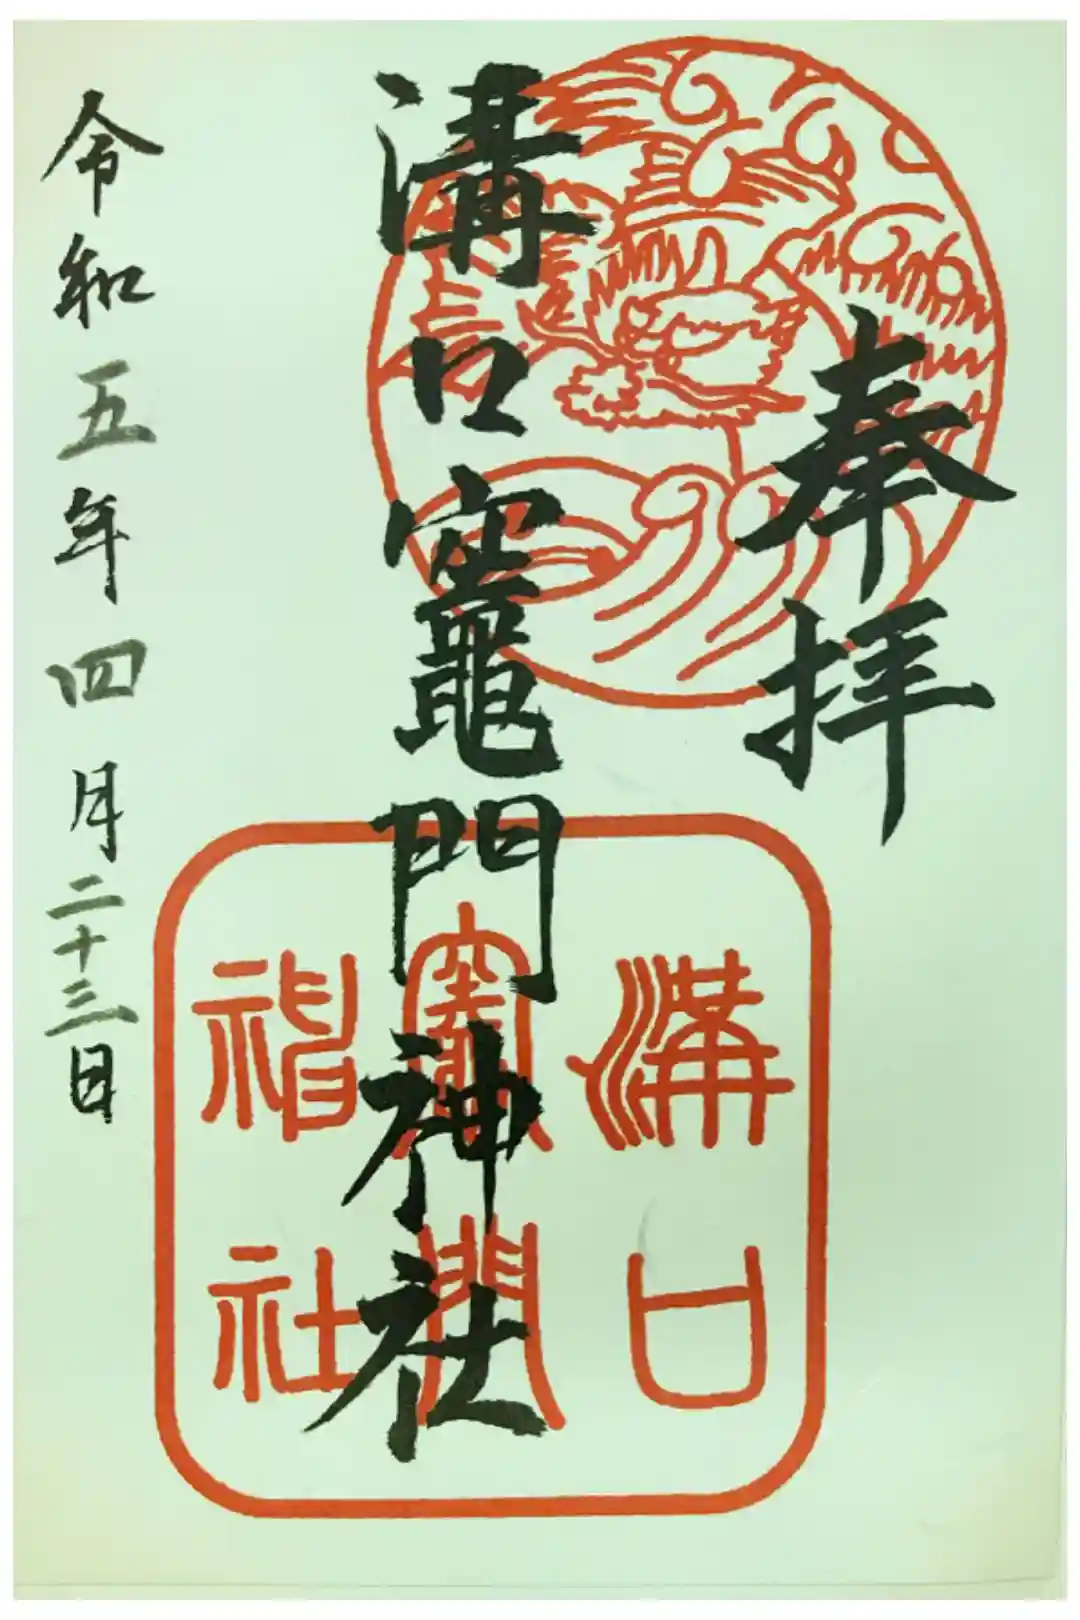 奉拝
溝口竈門神社
溝口
竈門
神社
令和五年四月二十三日